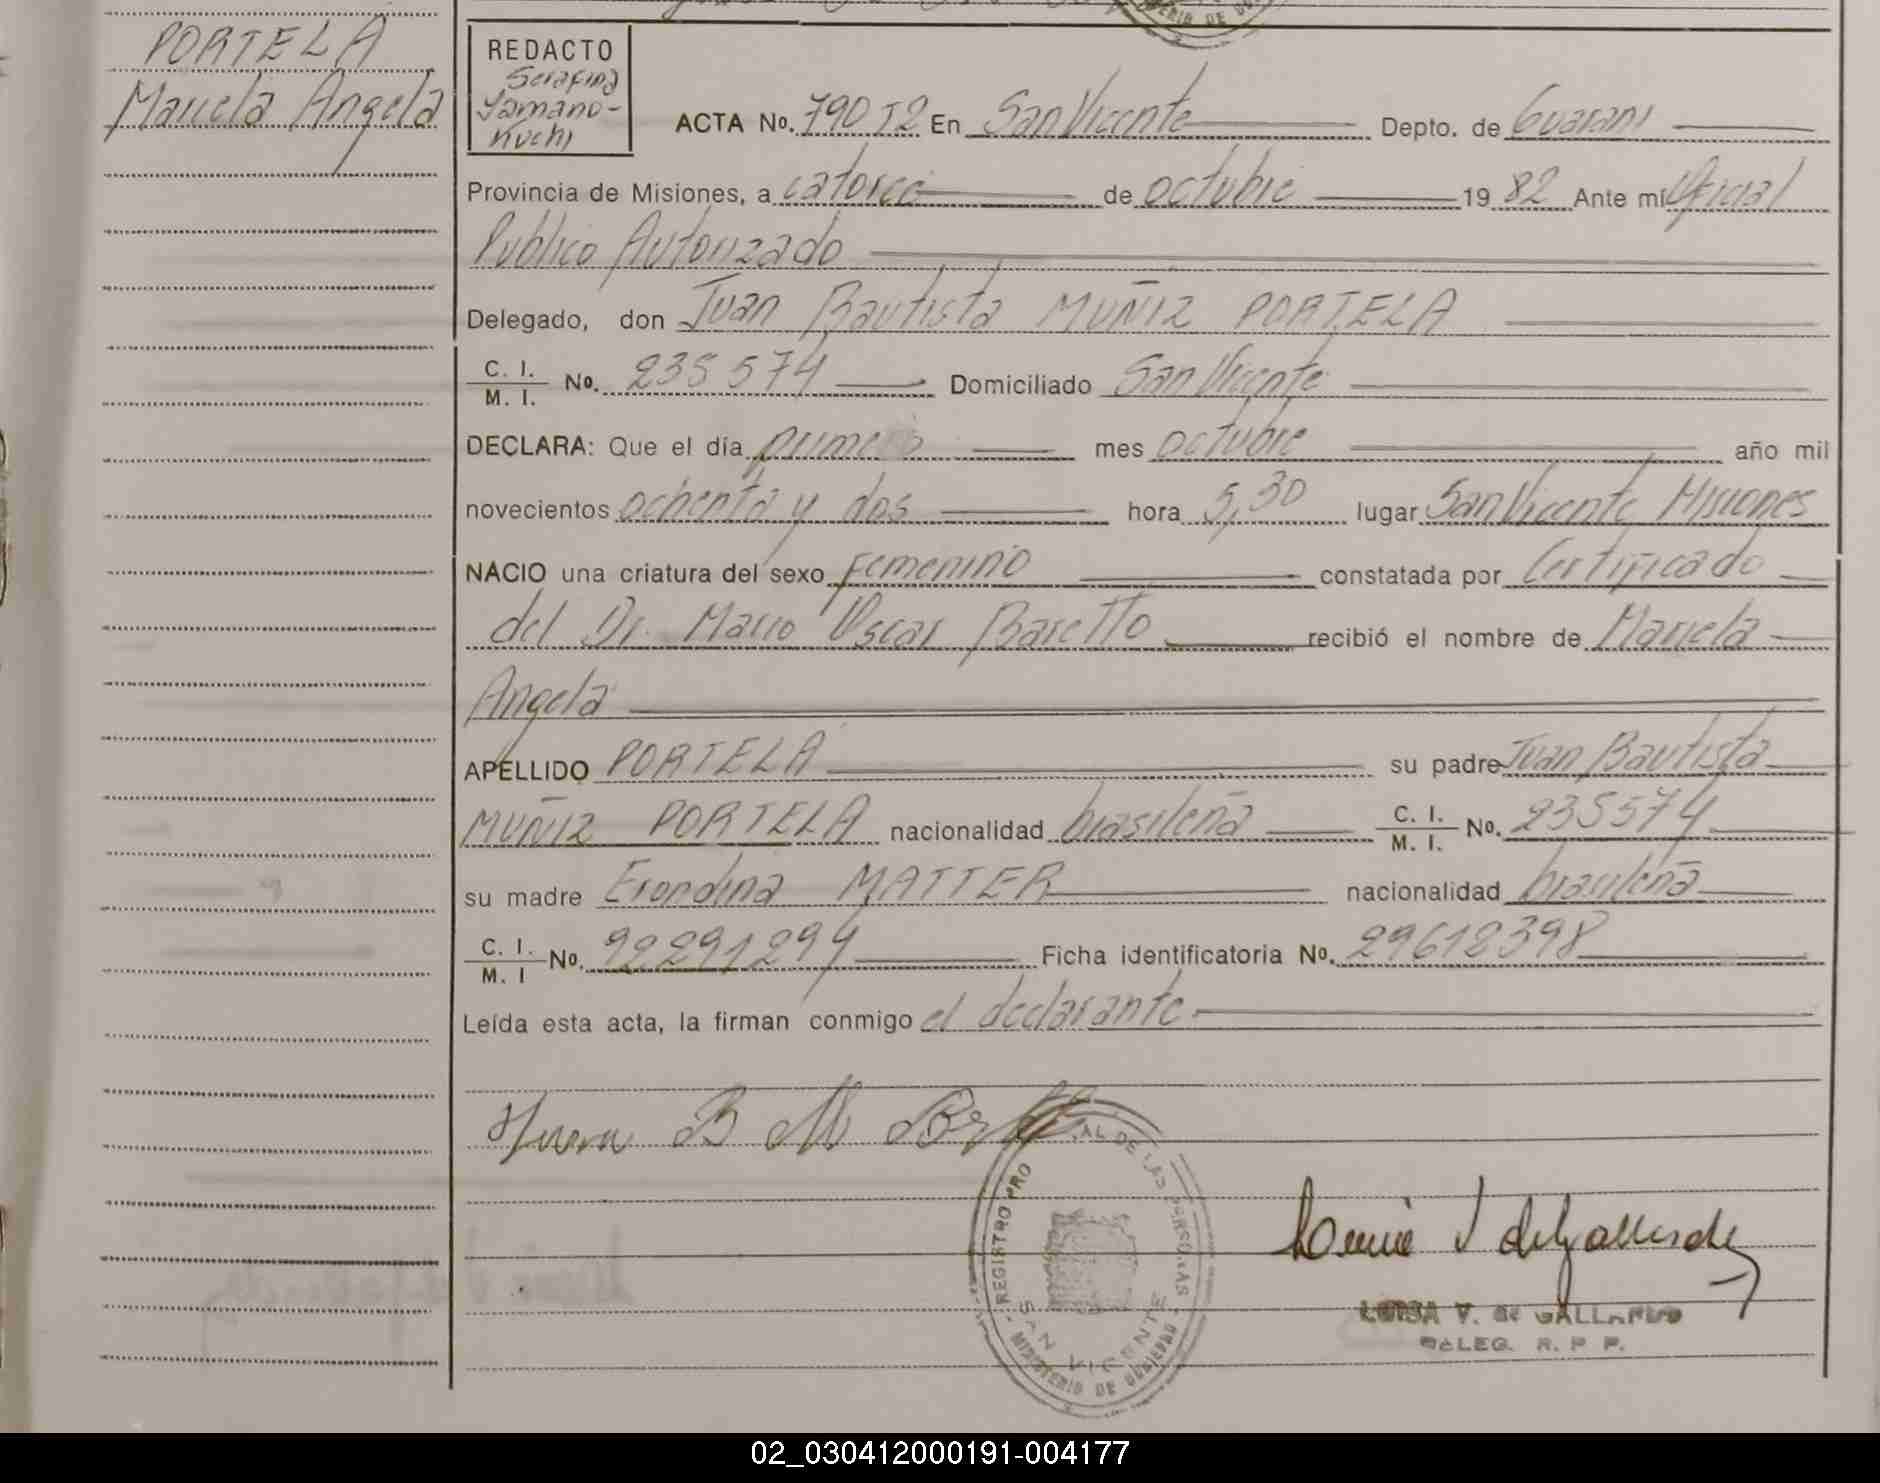 PORTELA
Mariela Angela
REDACTO
Serafina
Yamano-
kuchi
ACTA No. 790 T2 En San Vicente Depto. de Guarani
Provincia de Misiones, a catorce de octubre 19 82 Ante mí Oficial
Publico Autorizado
Delegado, don Juan Bautista MUÑIZ PORTELA
C. I.
M. I. No. 235574 Domiciliado San Vicente
DECLARA: Que el día primero mes octubre año mil
novecientos ochenta y dos hora 5,30 lugar San Vicente Misiones
NACIO una criatura del sexo Femenino constatada por Certificado
del Dr. Mario Oscar Baretto recibió el nombre de Mariela
Angela
APELLIDO PORTELA su padre Juan Bautista
MUÑIZ PORTELA nacionalidad brasileña C. I.
M. I. No. 235574
su madre Erondina MATTER nacionalidad brasileña
C. I.
M. I No. 92291294 Ficha identificatoria No. 29612398
Leída esta acta, la firman conmigo el declarante
REGISTRO PRO AL DE LAS PERSONAS
SAN VICENTE
MINISTERIO DE GOBIERNO
LUISA V. DE GALLARDO
DELEG. R. P. P.
02_030412000191-004177